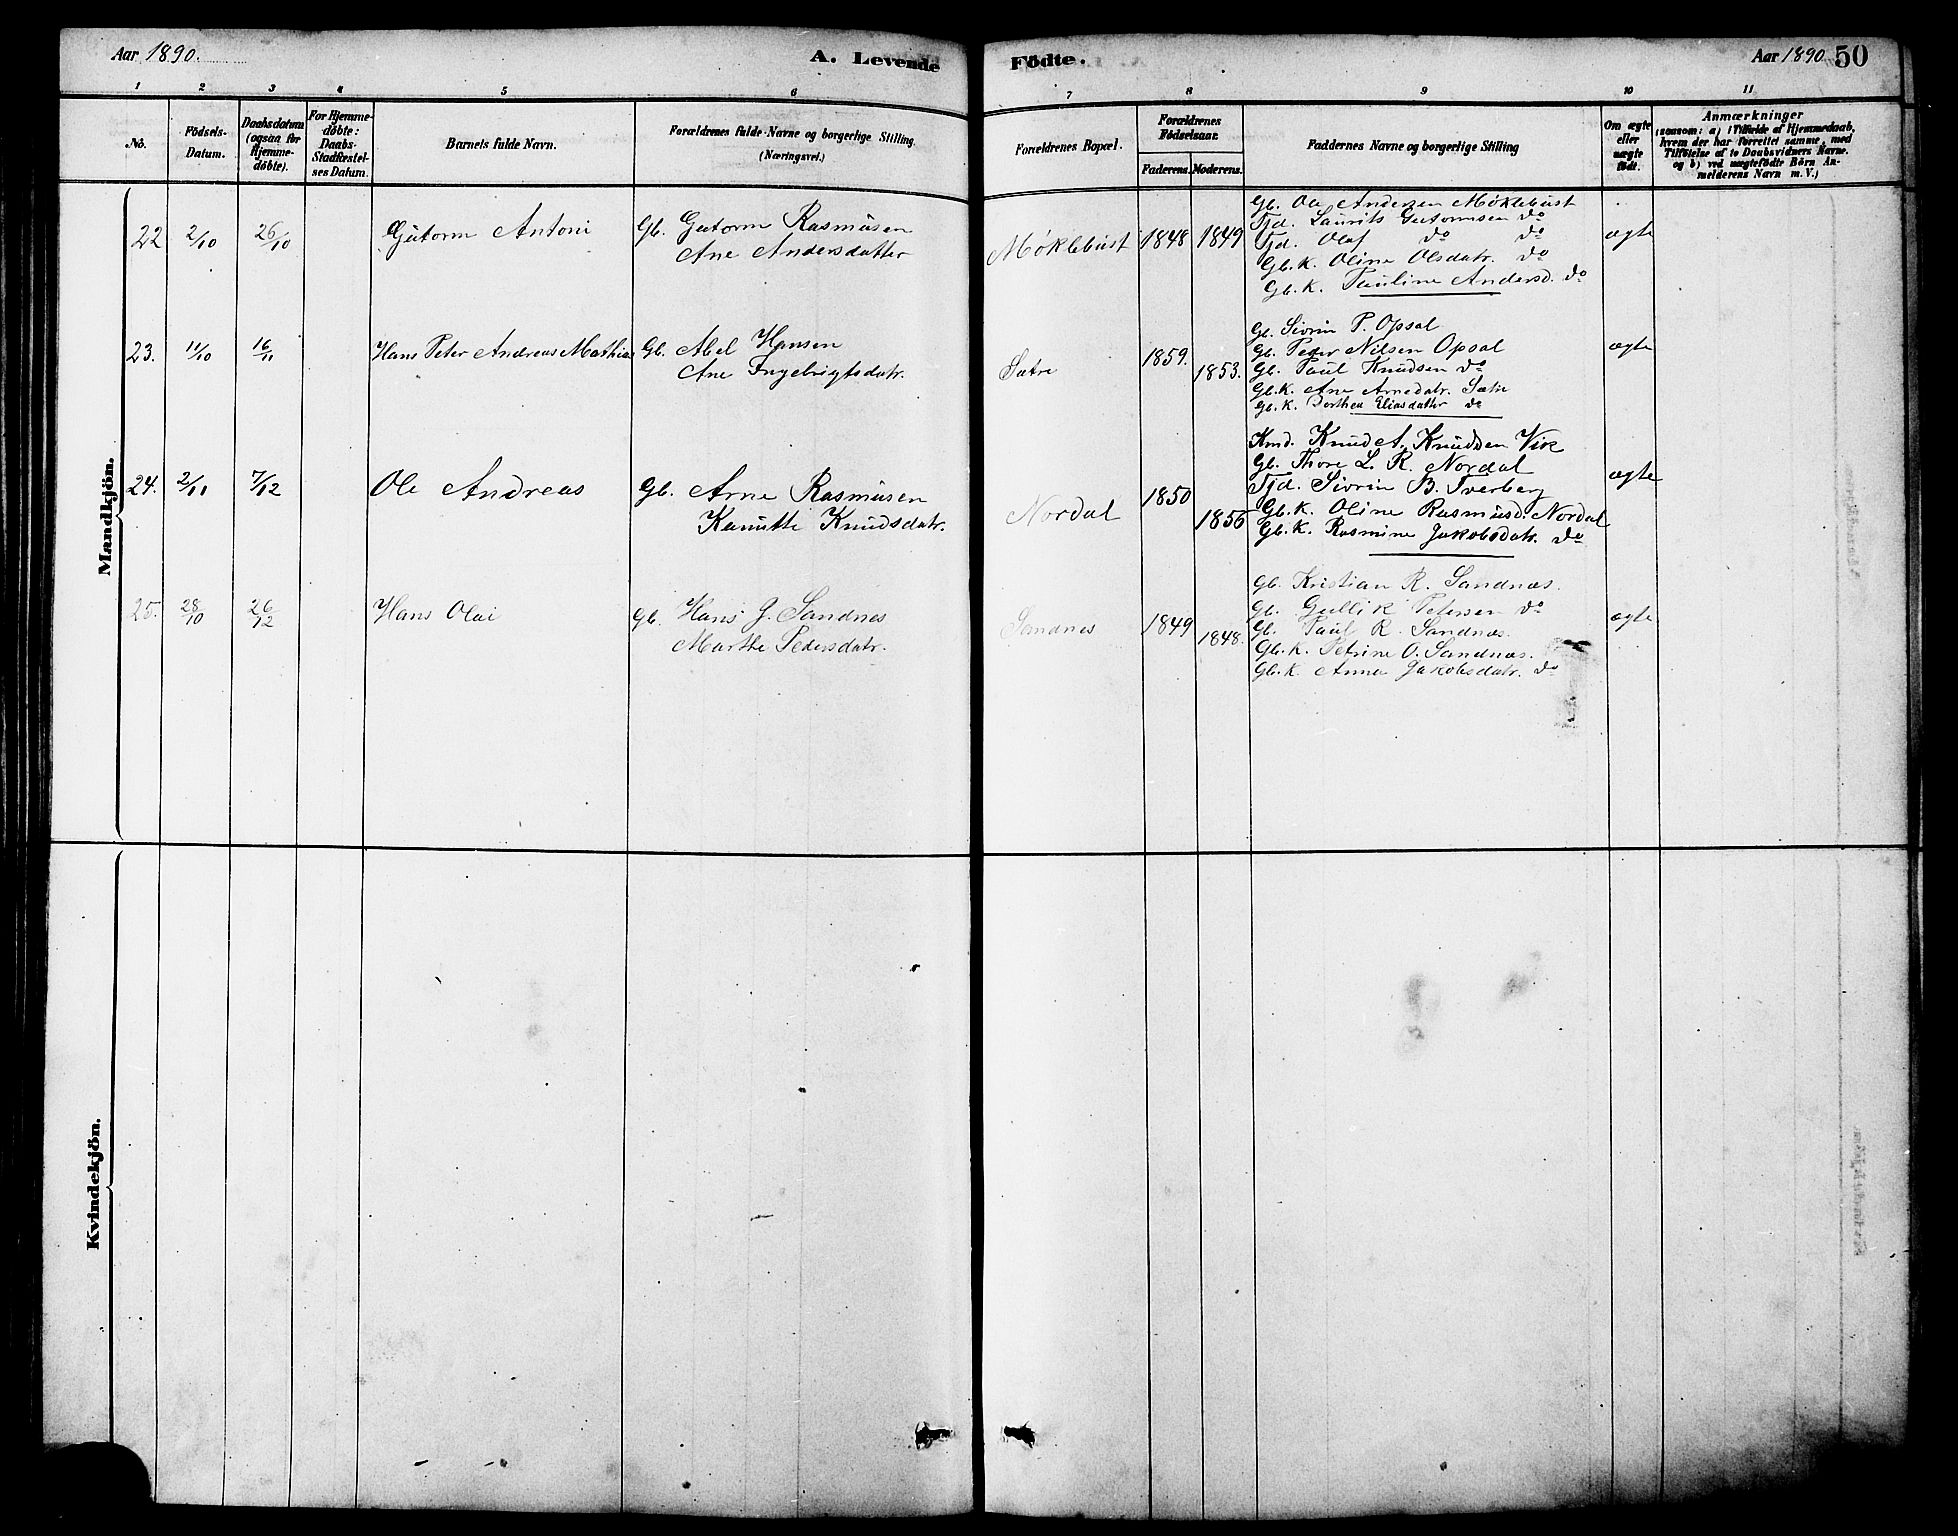 Aar 1890.
A. Levende Födte.
Aar 1890 50
1 2 3 4 5 6 7 8 9 10 11
No.
Födsels-Datum.
Daabsdatum (ogsaa for Hjemme-döbte).
For Hjemme-döbte: Daabs-Stadfæstel-ses Datum.
Barnets fulde Navn.
Forældrenes fulde Navne og borgerlige Stilling. (Næringsvei.)
Forældrenes Bopæl.
Forældrenes Födselsaar.
Faderens. Moderens.
Faddernes Navne og borgerlige Stilling
Om ægte eller uægte födt.
Anmærkninger
(saasom: a) i Tilfælde af Hjemmedaab, hvem der har forrettet samme, med Tilföielse af to Daabsvidners Navne. og b) ved uægtefödte Börn An-melderens Navn m. V.)
Mandkjön.
22 2/10 26/10 Gutorm Antoni Gb. Gutorm Rasmusen
Ane Andersdatter
Møklebust 1848 1849
Gb. Ole Andersen Møklebust
Tjd. Laurits Gutormsen do
Tjd. Olaf do do
Gb.K. Oline Olsdatr. do
Gb.K. Pauline Andersd. do
ægte
23. 11/10 16/11 Hans Peter Andreas Mathias Gb. Abel Hansen
Ane Ingebrigtsdatr.
Sætre 1859. 1853.
Gb. Sivrin P. Opsal
Gb. Peder Nilsen Opsal
Gb. Paul Knudsen do
Gb.K. Ane Arnedatr. Sætre
Gb.K. Dorthea Eliasdatter do
ægte
24. 2/11 7/12 Ole Andreas Gb. Arne Rasmusen
Kanutte Knudsdatr.
Nordal 1850 1856
Kmd. Knud A. Knudsen Vik
Gb. Thore L. R. Nordal
Tjd. Sivrin B. Tverberg
Gb.K. Oline Rasmusd. Nordal
Gb.K. Rasmine Jakobsdatr. do
ægte
25. 28/10 26/12 Hans Olai Gb. Hans J. Sandnes
Marthe Pedersdatr.
Sandnes 1849 1848.
Gb. Kristian R. Sandnæs.
Gb. Gullik Petersen do
Gb. Paul R. Sandnæs.
Gb.K. Petrine O. Sandnæs.
Gb.K. Anna Jakobsdatr. do
ægte
Kvindekjön.